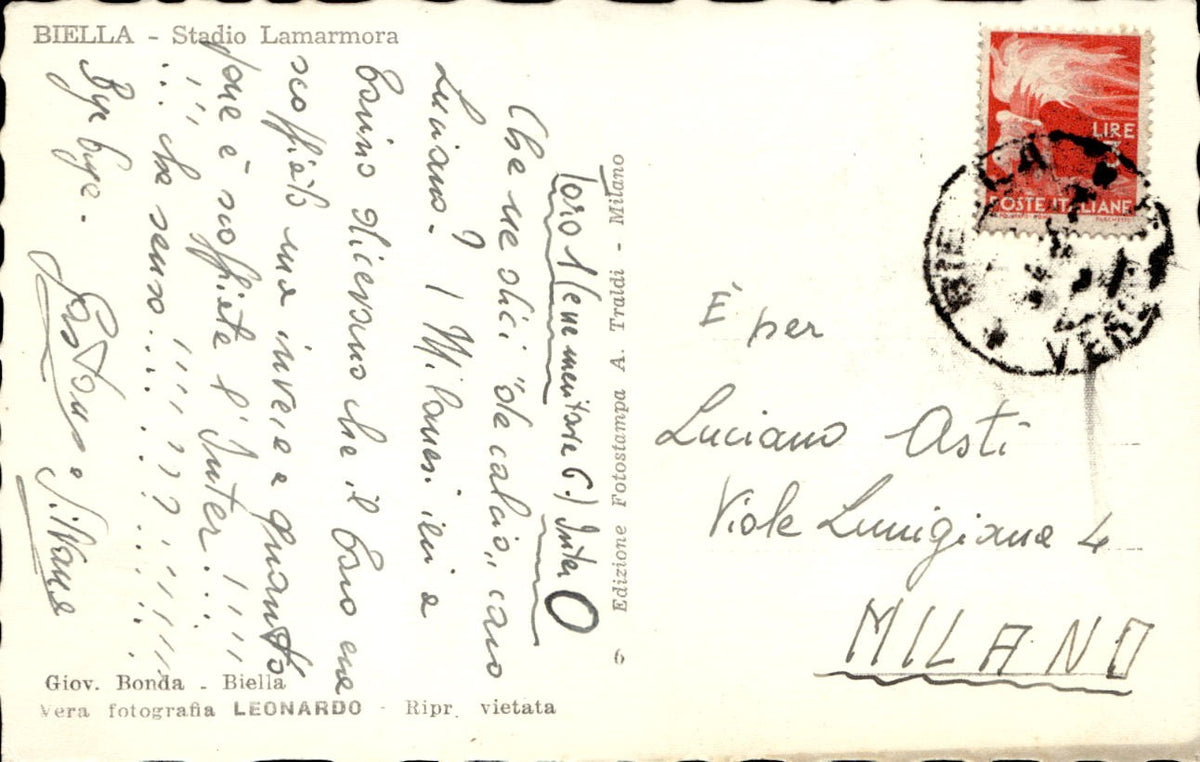 BIELLA - Stadio Lamarmora
Toro 1 (ene meritava 6.) Inter 0
Che ne dici "de calcio,, caro
Luciano. ? I Milanesi ieri a
Torino dicevano che il Toro era
scoffiato ma invece a quanto
pare è scoffiata l'Inter....!!!!
... che senso.....
Bye bye.
Silvana
Edizione Fotostampa A. Traldi - Milano
6
Giov. Bonda - Biella
Vera fotografia LEONARDO - Ripr. vietata
LIRE
3
POSTE ITALIANE
È per
Luciano Asti
Viale Lunigiana 4
MILANO